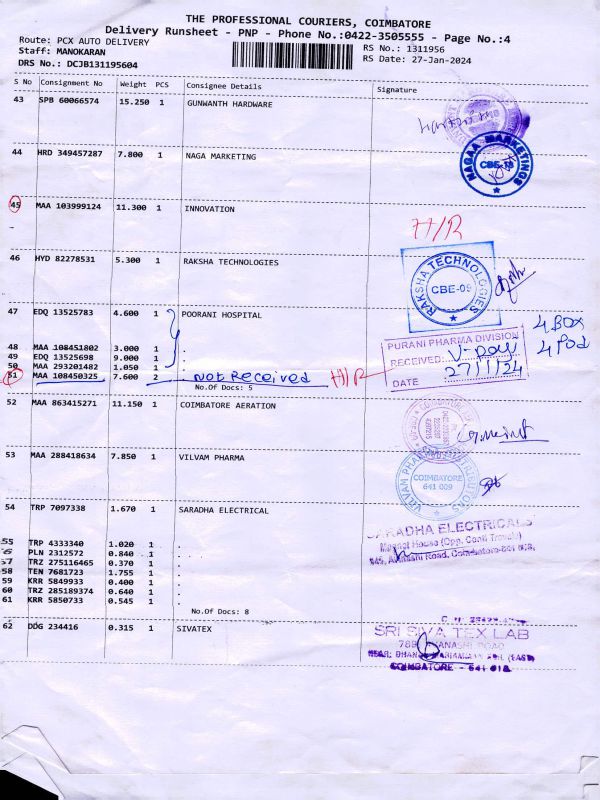 THE PROFESSIONAL COURIERS, COIMBATORE
Delivery Runsheet - PNP - Phone No.:0422-3505555 - Page No.:4
Route: PCX AUTO DELIVERY
RS No.: 1311956
Staff: MANOKARAN
RS Date: 27-Jan-2024
DRS No.: DCJB131195604
S No Consignment No Weight PCS Consignee Details Signature
43 SPB 60066574 15.250 1 GUNWANTH HARDWARE
44 HRD 349457287 7.800 1 NAGA MARKETING
NAGAA MARKETINGS
CBE-18
45 MAA 103999124 11.300 1 INNOVATION
H/R
46 HYD 82278531 5.300 1 RAKSHA TECHNOLOGIES
RAKSHA TECHNOLOGIES
CBE-09
47 EDQ 13525783 4.600 1 POORANI HOSPITAL
4 BOX
4 Pod
PURANI PHARMA DIVISION
RECEIVED:
DATE 27/1/24
48 MAA 108451802 3.000 1 .
49 EDQ 13525698 9.000 1 .
50 MAA 293201482 1.050 1 .
51 MAA 108450325 7.600 2 Not Received H/R
No.Of Docs: 5
52 MAA 863415271 11.150 1 COIMBATORE AERATION
53 MAA 288418634 7.850 1 VILVAM PHARMA
VILVAM PHARMA DISTRIBUTORS
COIMBATORE
641 009
54 TRP 7097338 1.670 1 SARADHA ELECTRICAL
SARADHA ELECTRICALS
55 TRP 4333340 1.020 1 .
56 PLN 2312572 0.840 1 .
57 TRZ 275116465 0.370 1 .
58 TEN 7681723 1.755 1 .
59 KRR 5849933 0.400 1 .
60 TRZ 285189374 0.640 1 .
61 KRR 5850733 0.545 1 .
No.Of Docs: 8
62 DDG 234416 0.315 1 SIVATEX
SRI SIVA TEX LAB
COIMBATORE - 641 018